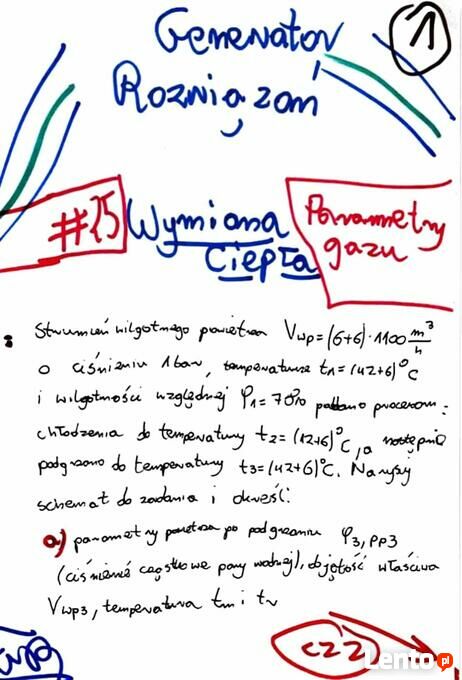 Generator
Rozwiązań
1
#25
Wymiana
Ciepła
Parametry
gazu
: Strumień wilgotnego powietrza Vwp=(6+6)·1100 m³/h
o ciśnieniu 1bar, temperaturze t1=(42+6)°C
i wilgotności względnej φ1=70% poddano procesom:
chłodzenia do temperatury t2=(12+6)°C, a następnie
podgrzano do temperatury t3=(42+6)°C. Narysuj
schemat do zadania i określ:
a) parametry powietrza po podgrzaniu φ3, pp3
(ciśnienie cząstkowe pary wodnej), objętość właściwa
Vwp3, temperatura tm i tr
cz2
Lento.pl